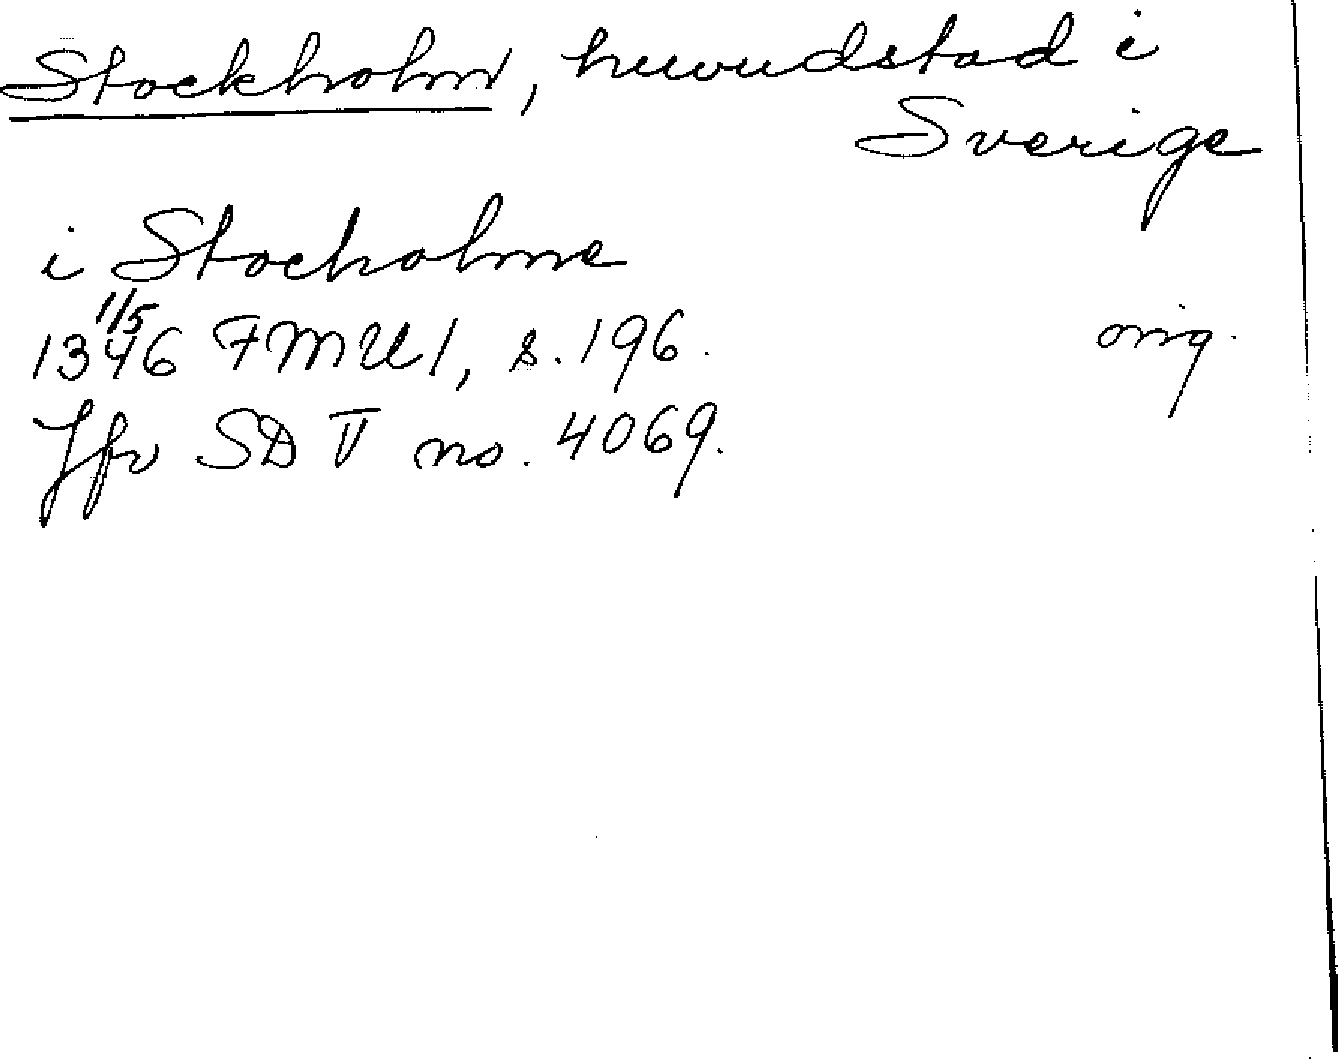 Stockholm, huvudstad i
Sverige
i Stocholme
1/5
1346 FMU 1, s. 196. orig.
Jfr SD V no. 4069.